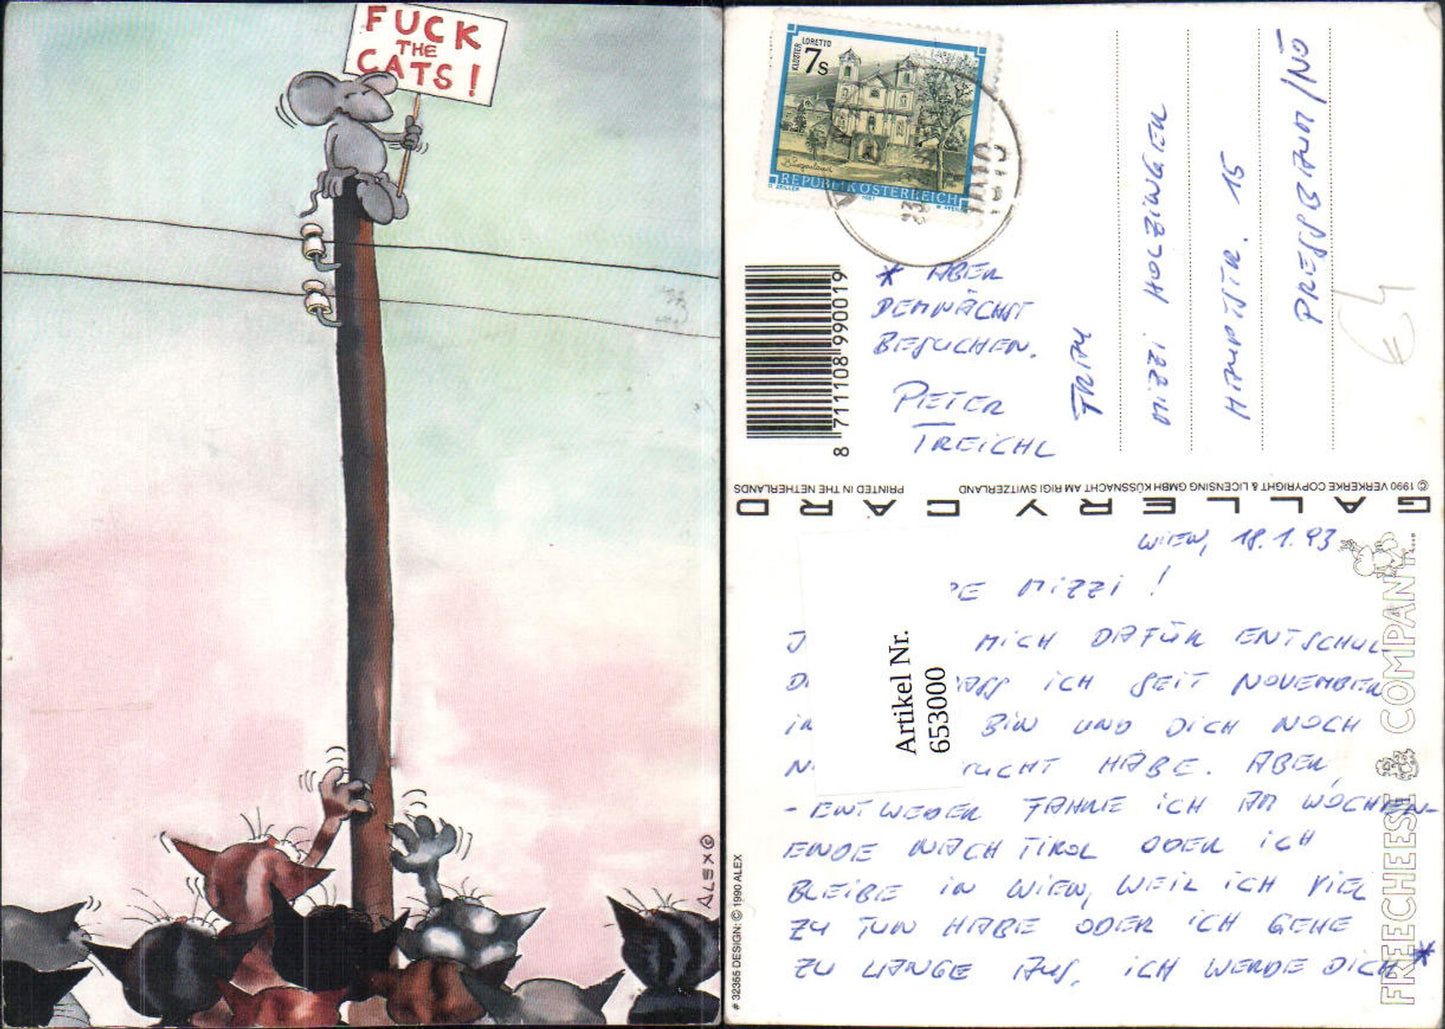 FUCK
THE
CATS!
ALEX ©
KLOSTER LORETTO
7s
REPUBLIK ÖSTERREICH
8 711108 990019
* ABER
DEMNÄCHST
BESUCHEN.
PETER
TREICHL
FRAU
MIZZI HOLZINGER
HAUPTSTR. 15
PRESSBAUM/NÖ
€ 4
© 1990 VERKERKE COPYRIGHT & LICENSING GMBH KÜSSNACHT AM RIGI SWITZERLAND
PRINTED IN THE NETHERLANDS
GALLERY CARD
WIEN, 18.1.93
BE MIZZI!
MICH DAFÜR ENTSCHUL-
ASS ICH SEIT NOVEMBER
BIN UND DICH NOCH
SUCHT HABE. ABER,
- ENTWEDER FAHRE ICH AM WOCHEN-
ENDE NACH TIROL ODER ICH
BLEIBE IN WIEN, WEIL ICH VIEL
ZU TUN HABE ODER ICH GEHE
ZU LANGE AUS. ICH WERDE DICH *
Artikel Nr.
653000
FREECHEESE & COMPANY
# 32355 DESIGN: © 1990 ALEX